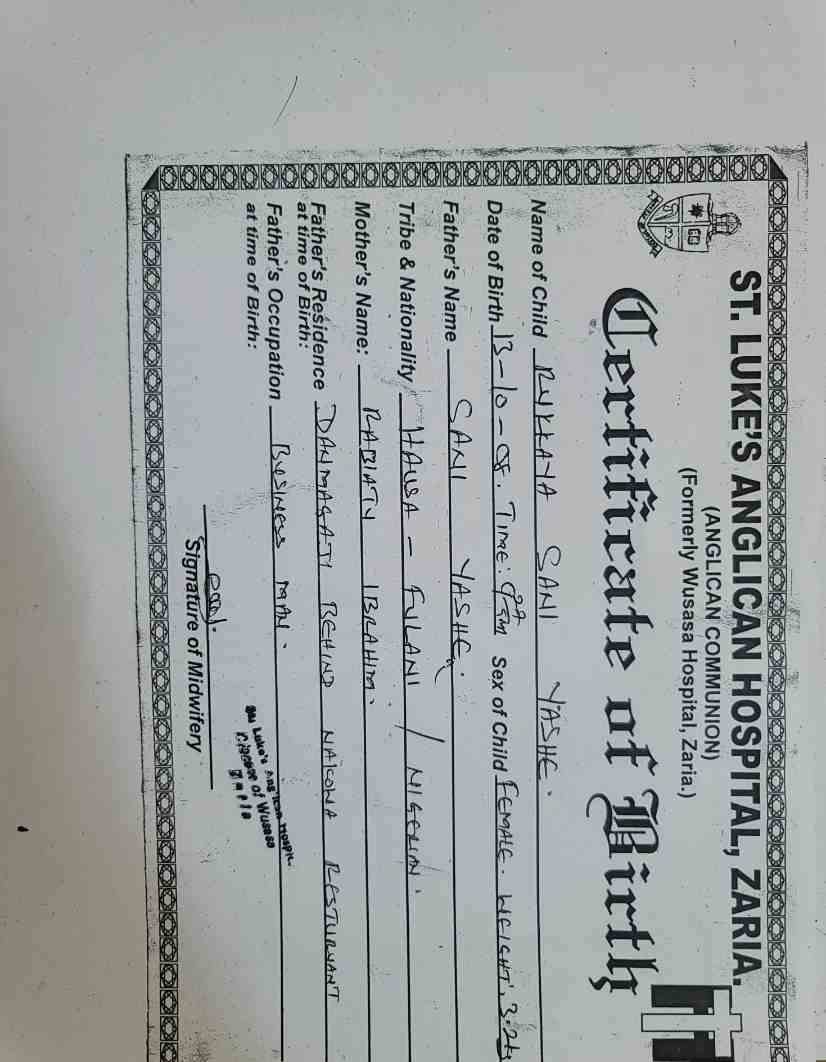 ST. LUKE'S ANGLICAN HOSPITAL, ZARIA.
(ANGLICAN COMMUNION)
(Formerly Wusasa Hospital, Zaria.)
Certificate of Birth
Name of Child RUKKAYA SANI YASHE.
Date of Birth 13-10-08. Time: Sex of Child FEMALE. WEIGHT. 3.2
Father's Name SANI YASHE.
Tribe & Nationality HAUSA - FULANI / NIGERIAN.
Mother's Name: RABIATU IBRAHIM.
Father's Residence at time of Birth: DANMAGATI BEHIND NAKOWA RESTURYANT
Father's Occupation at time of Birth: BUSINESS MAN.
Signature of Midwifery
Luke's
of Wusasa